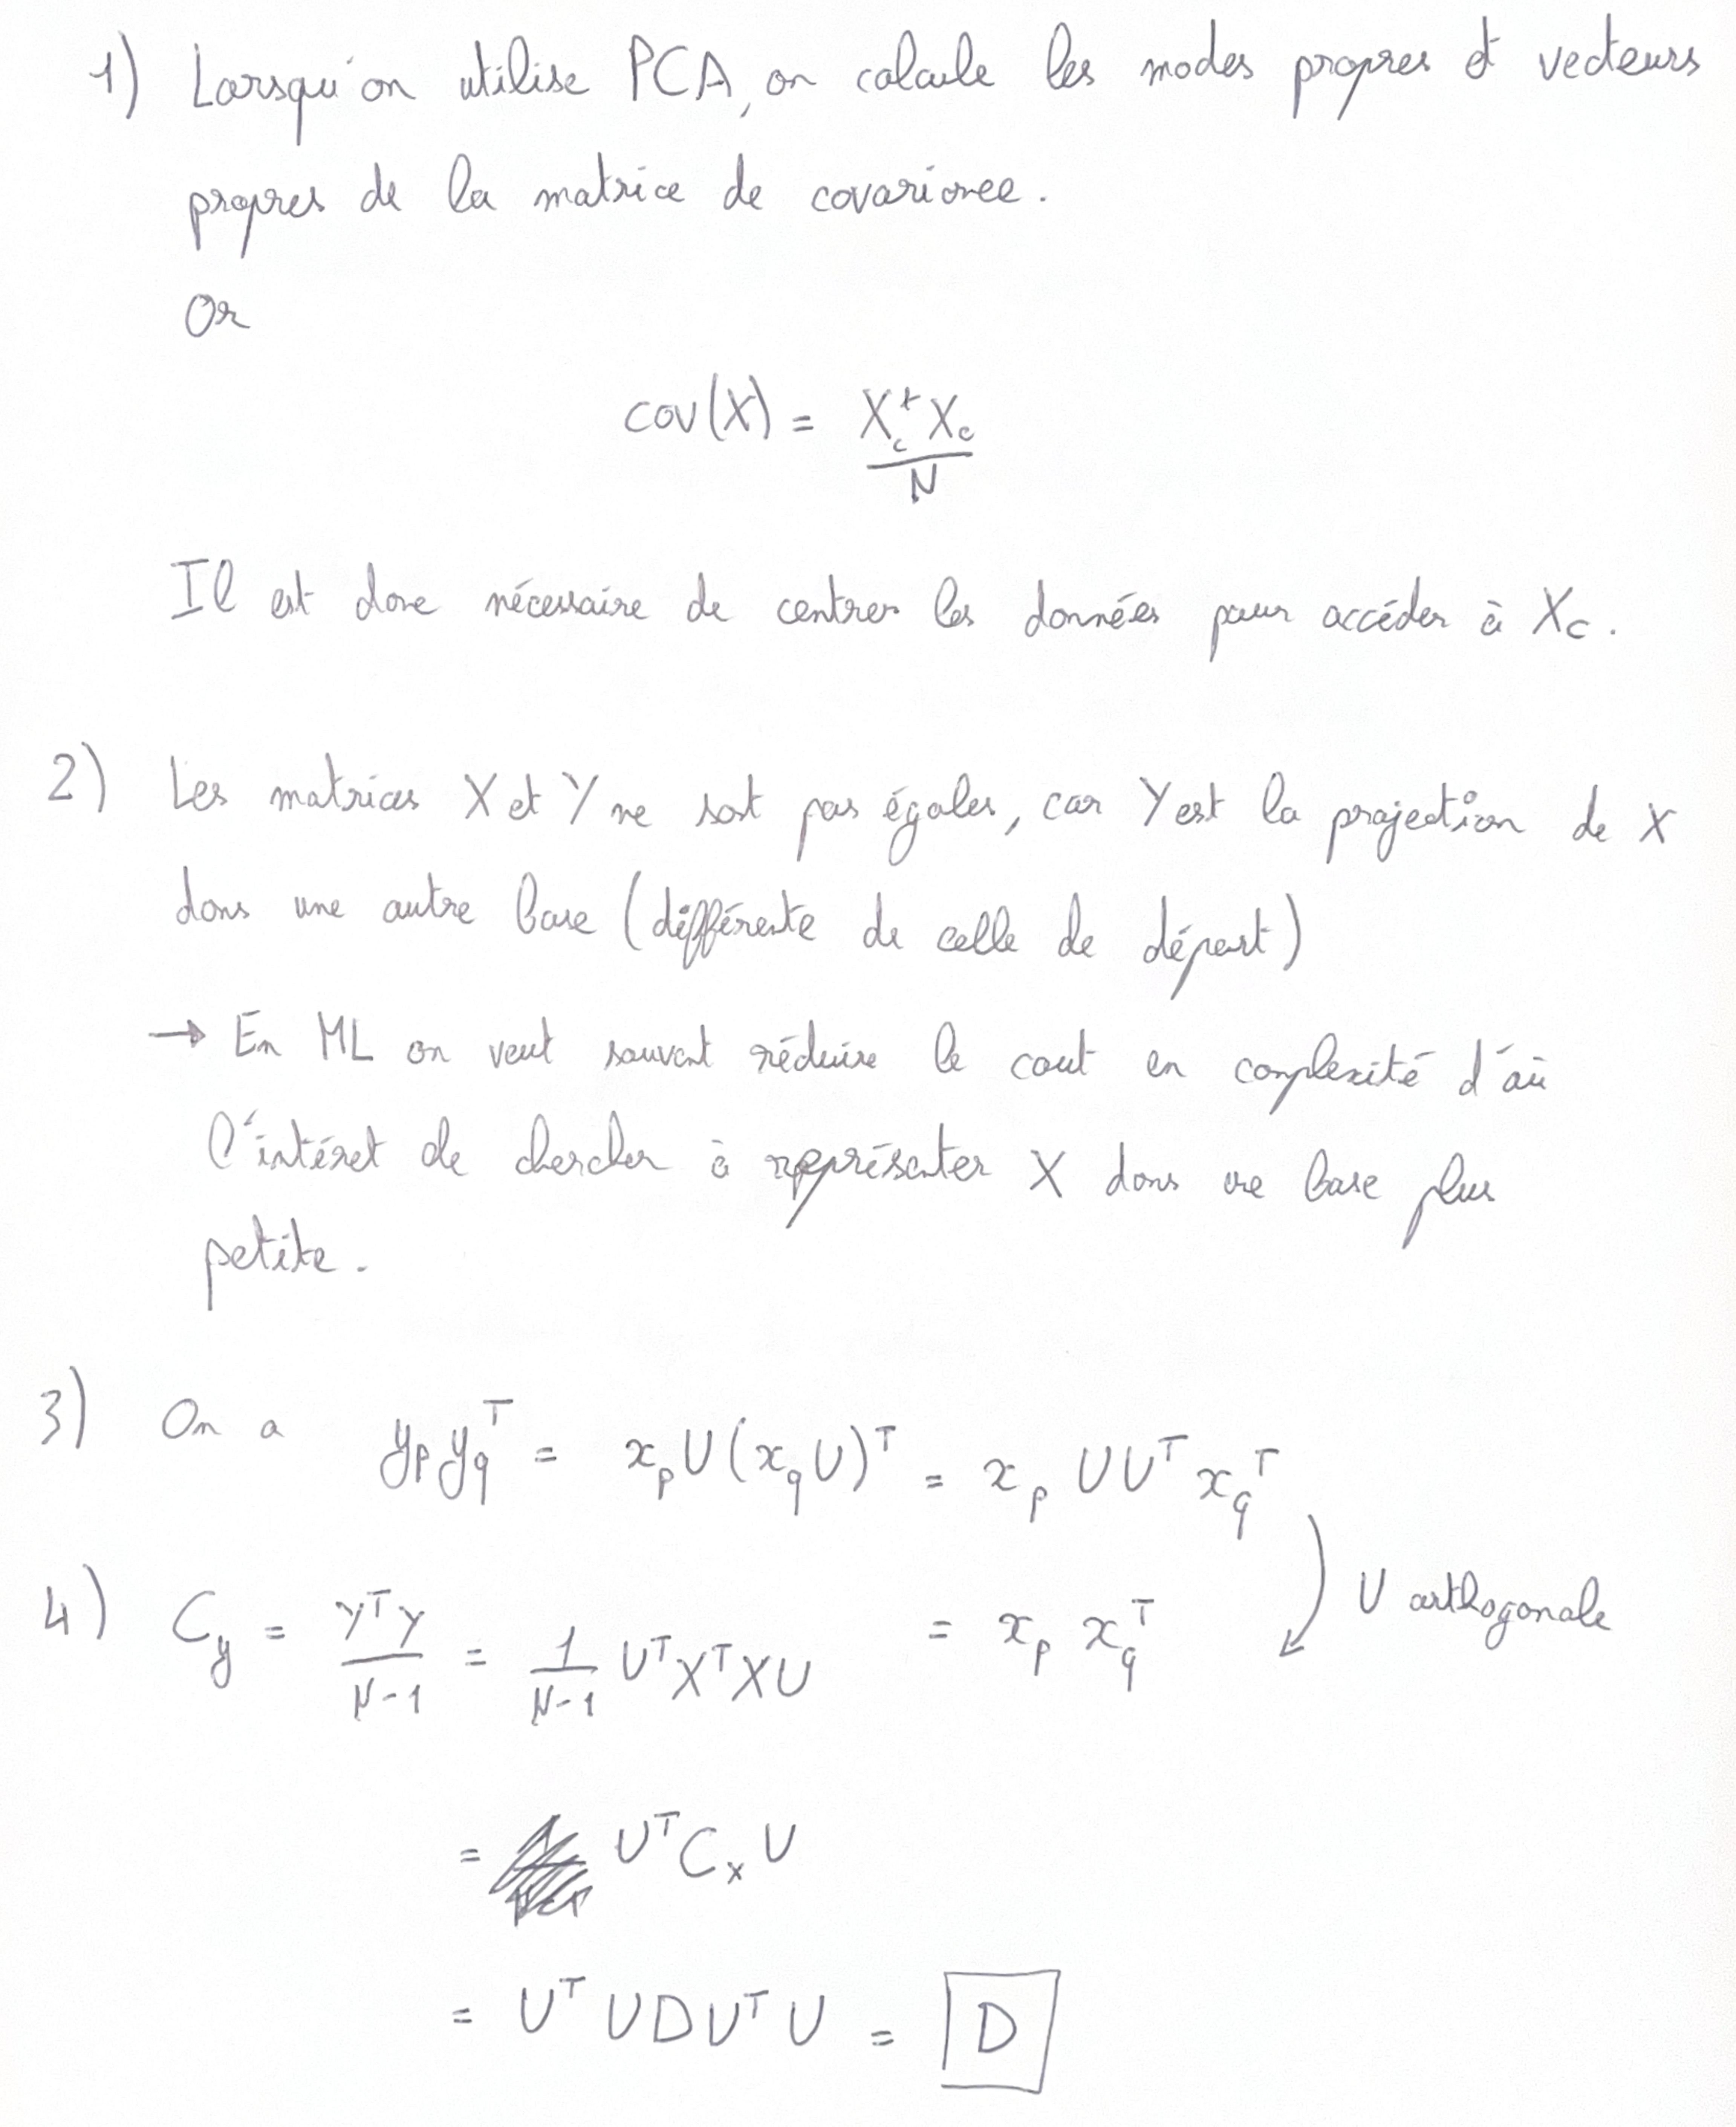 1) Lorsqu'on utilise PCA, on calcule les modes propres et vecteurs
propres de la matrice de covariance.
Or
cov(X) = X_c^t X_c / N
Il est donc nécessaire de centrer les données pour accéder à X_c.
2) Les matrices X et Y ne sont pas égales, car Y est la projection de X
dans une autre base (différente de celle de départ)
→ En ML on veut souvent réduire le cout en complexité d'où
l'intéret de chercher à représenter X dans une base plus
petite.
3) On a y_p y_q^T = x_p U (x_q U)^T = x_p U U^T x_q^T
= x_p x_q^T ) U orthogonale
4) C_y = Y^T Y / N-1 = 1/N-1 U^T X^T X U
= U^T C_x U
= U^T U D U^T U = D